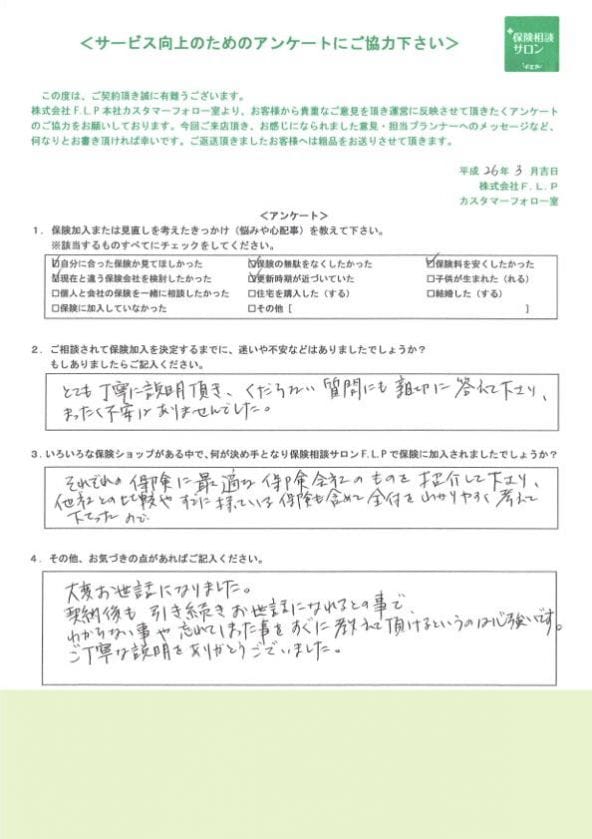 ＜サービス向上のためのアンケートにご協力下さい＞
保険相談
サロン
F.L.P
この度は、ご契約頂き誠に有難うございます。
株式会社F.L.P本社カスタマーフォロー室より、お客様から貴重なご意見を頂き運営に反映させて頂きたくアンケート
のご協力をお願いしております。今回ご来店頂き、お感じになられました意見・担当プランナーへのメッセージなど、
何なりとお書き頂ければ幸いです。ご返送頂きましたお客様へは粗品をお送りさせて頂きます。
平成 26年 3 月吉日
株式会社F.L.P
カスタマーフォロー室
＜アンケート＞
1．保険加入または見直しを考えたきっかけ（悩みや心配事）を教えて下さい。
※該当するものすべてにチェックをしてください。
☑自分に合った保険か見てほしかった ☑保険の無駄をなくしたかった ☑保険料を安くしたかった
☑現在と違う保険会社を検討したかった ☑更新時期が近づいていた □子供が生まれた（れる）
□個人と会社の保険を一緒に相談したかった □住宅を購入した（する） □結婚した（する）
□保険に加入していなかった □その他 [ ]
2．ご相談されて保険加入を決定するまでに、迷いや不安などはありましたでしょうか？
もしありましたらご記入ください。
とても丁寧に説明頂き、くだらない質問にも親切に答えて下さり、
まったく不安はありませんでした。
3．いろいろな保険ショップがある中で、何が決め手となり保険相談サロンF.L.Pで保険に加入されましたでしょうか？
それぞれの保険に最適な保険会社のものを紹介して下さり、
他社との比較やすでに持っている保険も含めて全体をわかりやすく考えて
下さったので
4．その他、お気づきの点があればご記入ください。
大変お世話になりました。
契約後も引き続きお世話になれるとの事で、
わからない事や忘れてしまった事をすぐに教えて頂けるというのは心強いです。
ご丁寧な説明をありがとうございました。